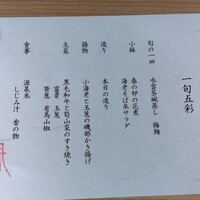 一旬五彩
旬の一皿 水雲茶碗蒸し 梅麹
小鉢 春の卵の花煮
海老そば米サラダ
造り 本日の造り
揚物 小海老と玉葱の磯部かき揚げ
主菜 黒毛和牛と筍山菜のすき焼き
富貴 玉葱
笹葱 有馬山椒
食事 源泉米
しじみ汁 香の物